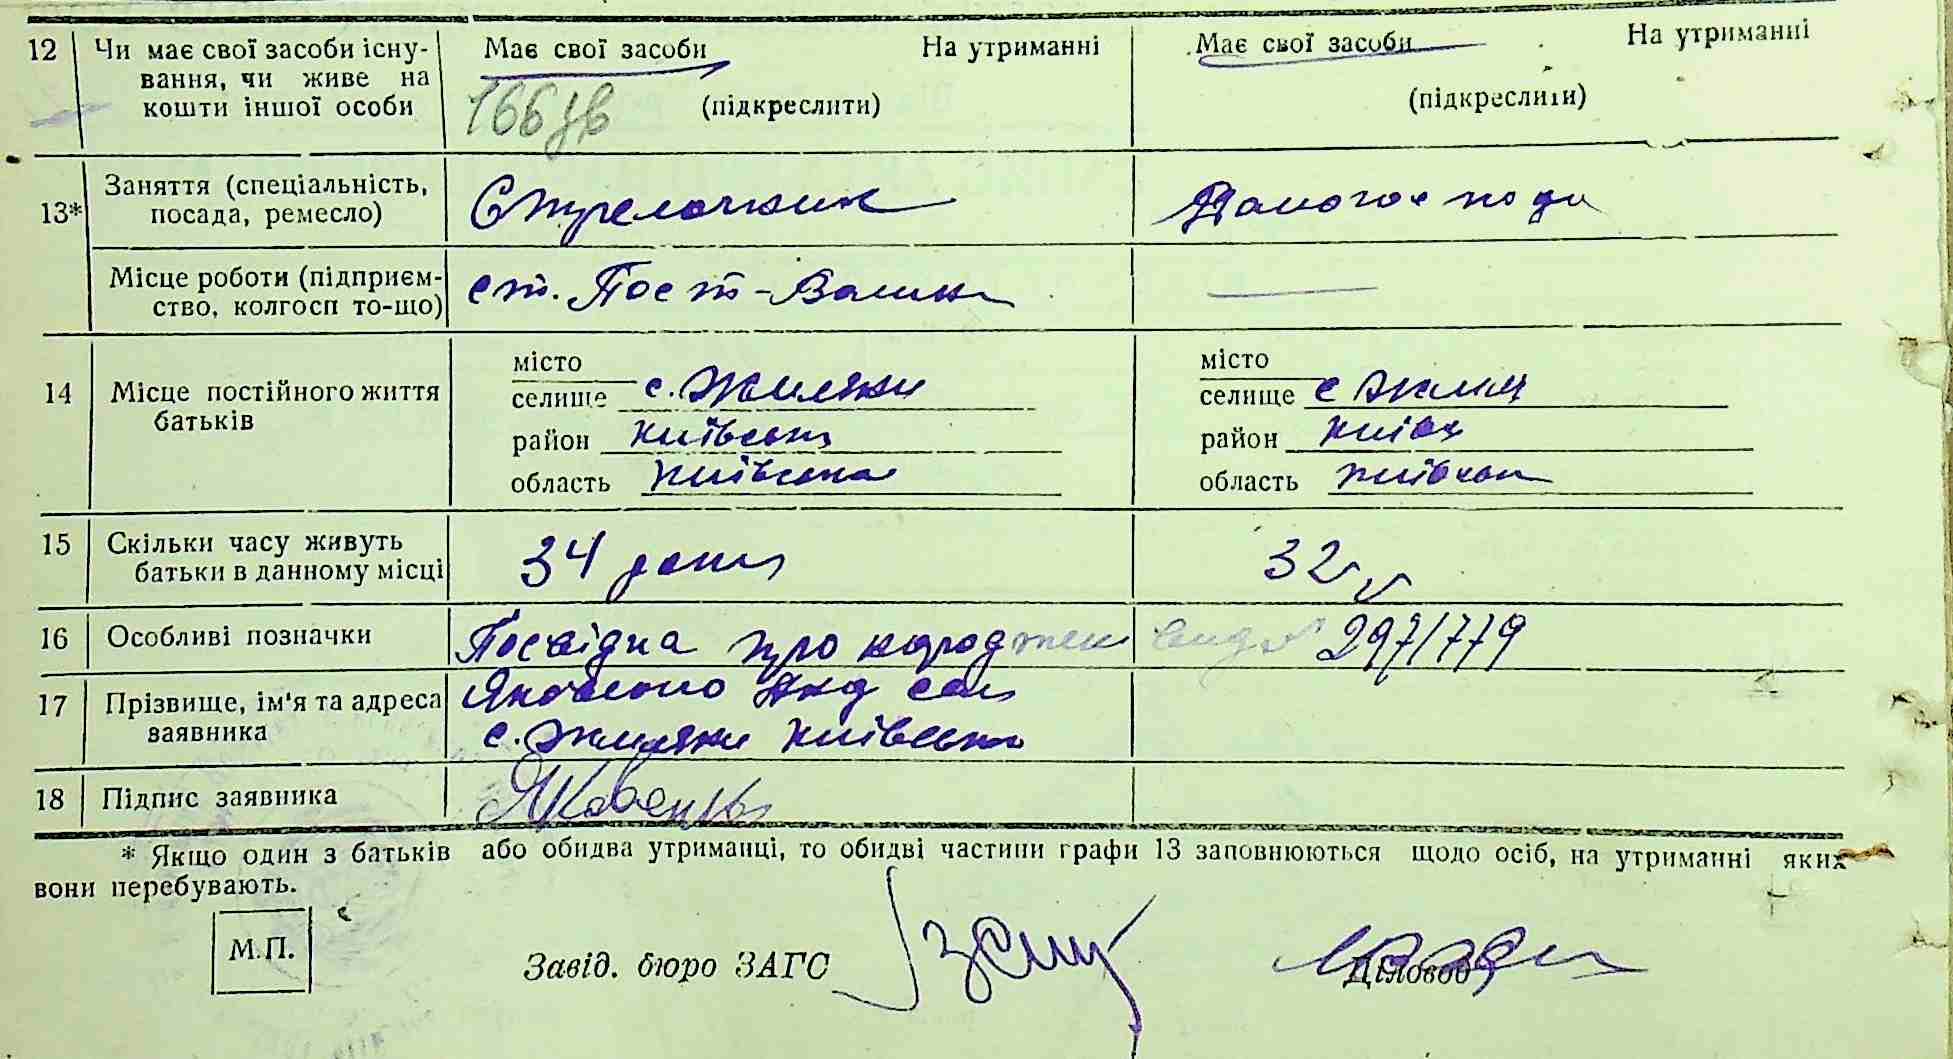 12 Чи має свої засоби існу- Має свої засоби На утриманні Має свої засоби На утриманні
вання, чи живе на
кошти іншої особи 166 (підкреслити) (підкреслити)
13* Заняття (спеціальність,
посада, ремесло) Стрелочник Домогоспода
Місце роботи (підприєм-
ство, колгосп то-що) ст. Пост-Волин
14 Місце постійного життя
батьків
місто місто
селище с. Жиляни селище с Жиля
район Київськ район Київ
область Київська область Київськ
15 Скільки часу живуть
батьки в данному місці 34 роки 32
16 Особливі позначки Посвідка про народжен 297/779
17 Прізвище, ім'я та адреса
заявника Яковенко
с. Жиляни Київськ
18 Підпис заявника Яковенко
* Якщо один з батьків або обидва утриманці, то обидві частини графи 13 заповнюються щодо осіб, на утриманні яких
вони перебувають.
М.П.
Завід. бюро ЗАГС Діловод